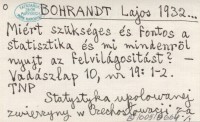 BOHRANDT Lajos 1932...
Miért szükséges és fontos a
statisztika és mi mindenről
nyujt az felvilágosítást? -
Vadászlap 10, nr 19: 1-2.
TNP
Statystyka upolowanej
zwierzyny w Czechosłowacji za